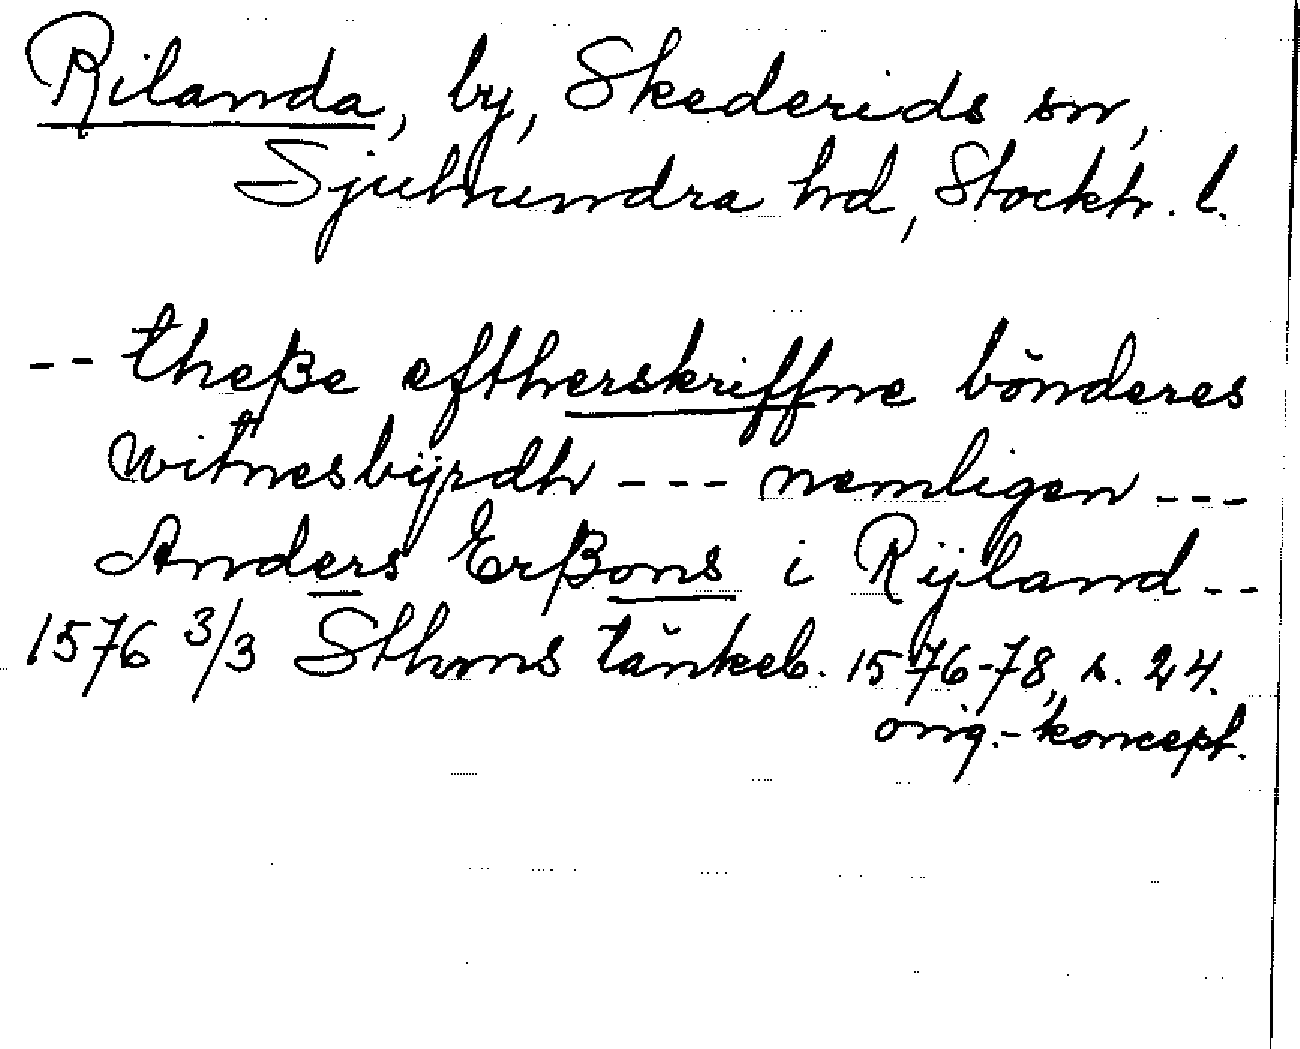 Rilanda, by, Skederids sn,
Sjuhundra hd, Stockh. l.
-- theße eftherskriffne bönderes
witnesbÿrdh --- nemligen ---
Anders Erßons i Rÿland --
1576 3/3 Sthms tänkeb. 1576-78, s. 24.
orig.-koncept.